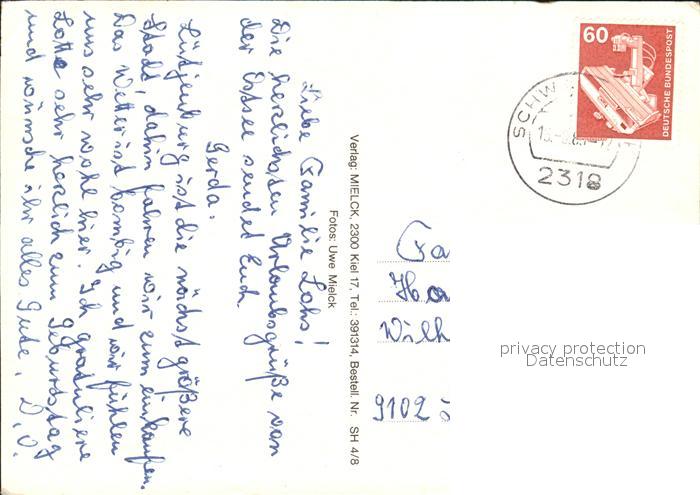 Liebe Familie Lohs!
Die herzlichsten Urlaubsgrüße von
der Ostsee sendet Euch
Gerda.
Lütjenburg ist die nächst größere
Stadt, dahin fahren wir zum einkaufen.
Das Wetter ist bombig und wir fühlen
uns sehr wohl hier. Ich gratuliere
Lotte sehr herzlich zum Geburtstag
und wünsche ihr alles Gute. D.O.
Verlag: MIELCK, 2300 Kiel 17, Tel.: 391314, Bestell. Nr. SH 4/8
Fotos: Uwe Mielck
60
DEUTSCHE BUNDESPOST
SCHW
2318
Fa
Ha
Wilh
9102
privacy protection
Datenschutz